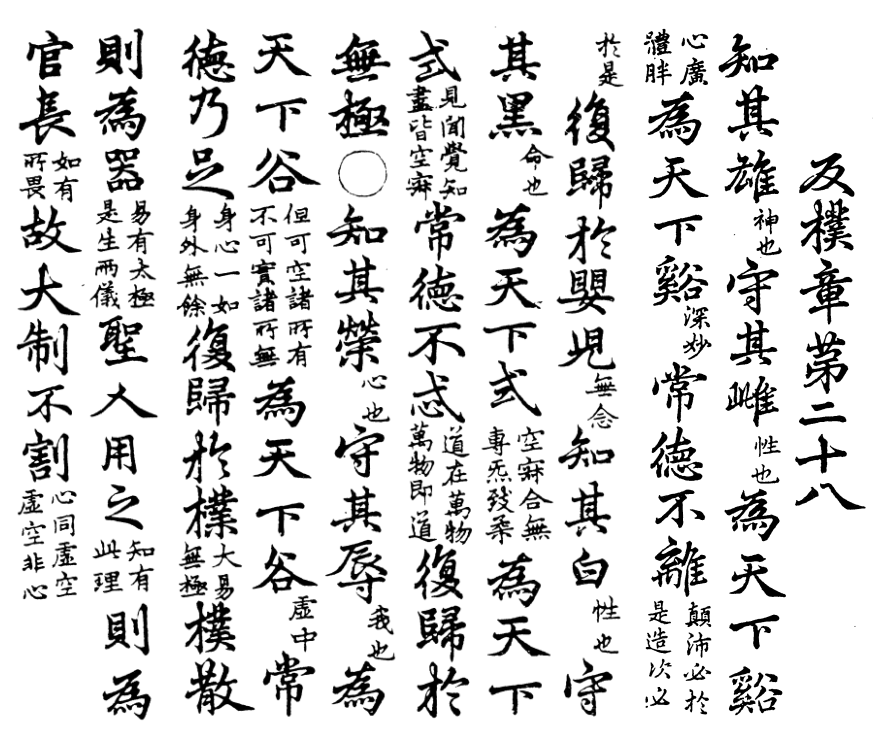 反樸章第二十八
知其雄神也守其雌性也為天下谿
心廣體胖為天下谿深妙常德不離顛沛必於是造次必
於是復歸於嬰兒無念知其白性也守
其黑命也為天下式空寂合無專炁致柔為天下
式見聞覺知盡皆空寂常德不忒道在萬物萬物即道復歸於
無極〇知其榮心也守其辱我也為
天下谷但可空諸所有不可實諸所無為天下谷虛中常
德乃足身心一如身外無餘復歸於樸大易無極樸散
則為器易有太極是生兩儀聖人用之知有此理則為
官長如有所畏故大制不割心同虛空虛空非心